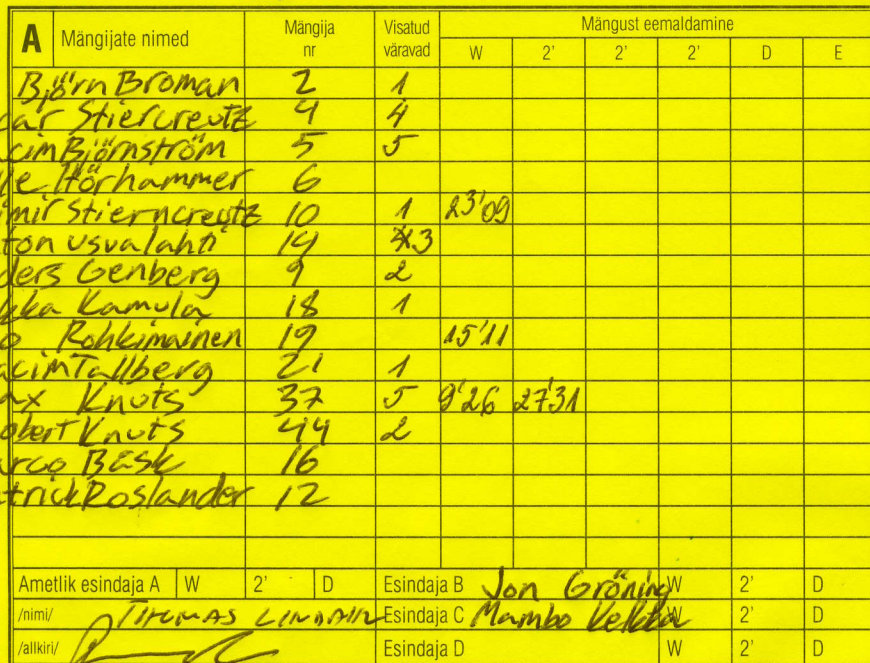 A Mängijate nimed Mängija nr Visatud väravad Mängust eemaldamine
W 2' 2' 2' D E
Björn Broman 2 1
car Stiercreutz 4 4
acim Björnström 5 5
le Hörhammer 6
imir Stierncreutz 10 1 23'09
ton Usvalahti 14 3
ders Genberg 9 2
kka Kamula 18 1
o Rohkimainen 19 15'11
acim Tallberg 21 1
ax Knuts 37 5 9'26 27'31
obert Knuts 44 2
arco Bäsk 16
atrick Roslander 12
Ametlik esindaja A W 2' D Esindaja B Jon Gröning W 2' D
/nimi/ THOMAS Esindaja C Mambo W 2' D
/allkiri/ Esindaja D W 2' D